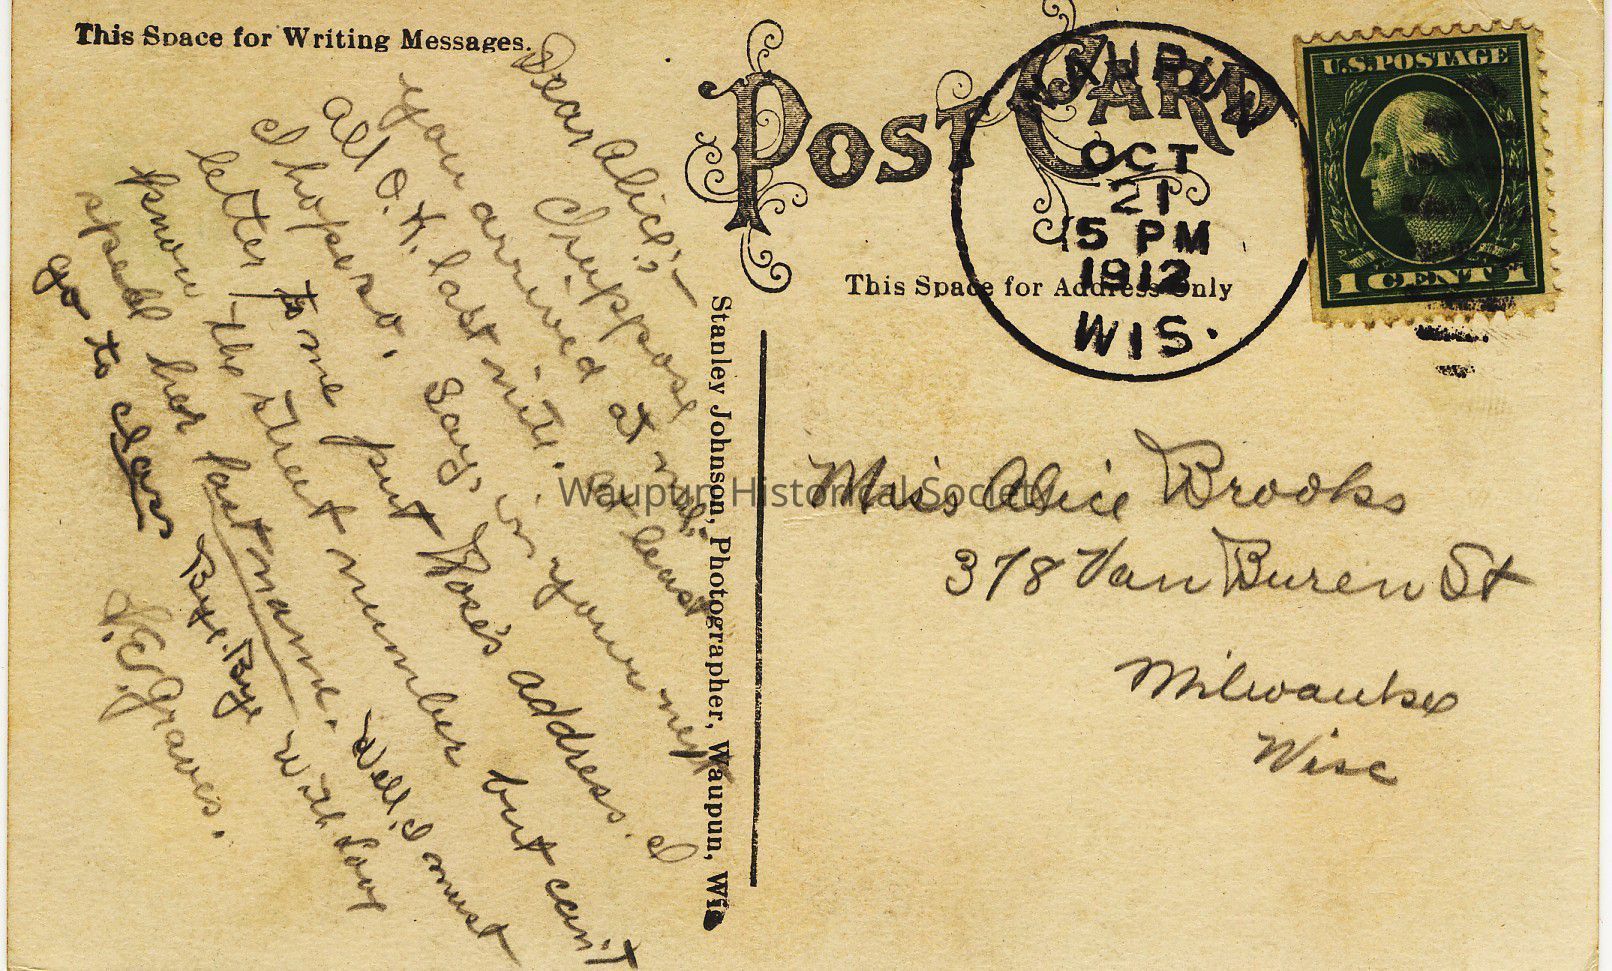 This Space for Writing Messages.
POST CARD
WAUPUN
OCT
21
5 PM
1912
WIS.
U.S. POSTAGE
1 CENT 1
This Space for Address Only
Dear Alice:—
I suppose
you arrived at Mil.
all O.K. last nite. At least
I hope so. Say, in your next
letter to me put Rose's address. I
know the street number but can't
spell her last name. Well, I must
go to class Bye-Bye with Love
S.E. Graves.
Stanley Johnson, Photographer, Waupun, Wis
Miss Alice Brooks
378 Van Buren St
Milwaukee
Wisc
Waupun Historical Society